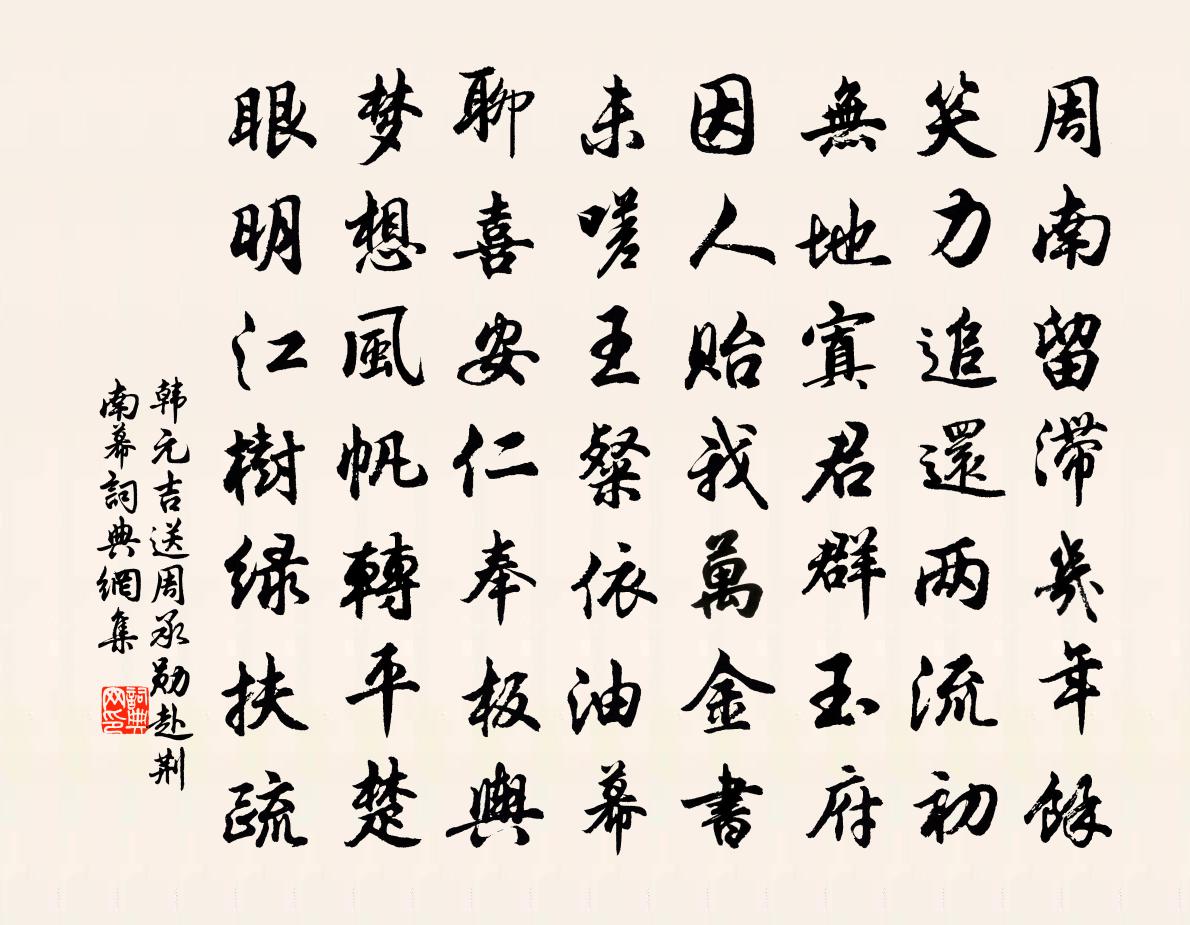 周南留滞幾年餘
笑力追還两流初
無地寘君群玉府
因人貽我萬金書
未嗟王粲依油幕
聊喜安仁奉板輿
梦想風帆轉平楚
眼明江樹绿扶疏
韩元吉送周承勋赴荆
南幕詞典網集
詞典网印